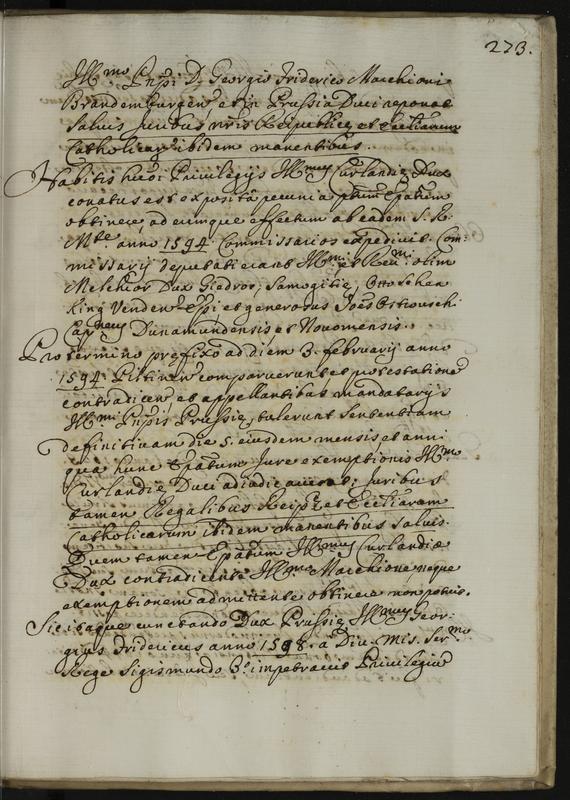 273.
Ill^mo Pnsi D. Georgio Friderico Marchioni
Brandemburgen. et in Prussia Duci reponat
salvis Juribus nris Reipublicę et Eccliarum
Catholicar. ibidem manentibus.
Habitis hnoi Privilegijs Ill^mus Curlandię Dux
conatus est exposita pecunia ptum Epatum
obtinere, ad eumque effectum ab eadem S. R.
M^te anno 1594. Commissarios expedivit. Com-
missarij deputati erant Ill^mi et Reu^mi olim
Melchior Dux Giedroc, Samogitię, Otto Schen
king Venden. Eppi et generosus Joes Ostrousch.
Cap^neus Dunamundensis et Novomensis.
Pro termino prefixo ad diem 3. februarij anno
1594. Piltinen. comparuerunt et potestatione
contradicen. et appellantibus mandatarijs
Ill^mi Pnsis Prussię, tulerunt sententiam
definitivam die 5. eiusdem mensis et anni
qua hunc Epatum Jure exemptionis Ill^mo
Curlandię Duci adiudicaverat; iuribus
tamen Regalibus Reipcę et Eccliarum
Catholicarum ibidem manentibus salvis.
Quem tamen Epatum Ill^mus Curlandiæ
Dux contradicente Ill^mo Marchione, neque
exemptionem admittente obtinere non potuit.
Sic itaque cunctando Dux Prussię Ill^mus Geor-
gius Fridericus anno 1598. a Divę Mis. Ser^mo
Rege Sigismundo 3.° impetravit Privilegiũ